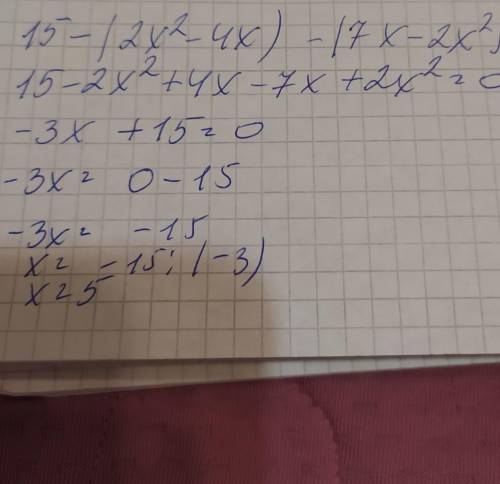 15-(2x²-4x) -(7x-2x²)
15-2x²+4x-7x+2x²=0
-3x +15=0
-3x= 0-15
-3x= -15
x= -15:(-3)
x=5